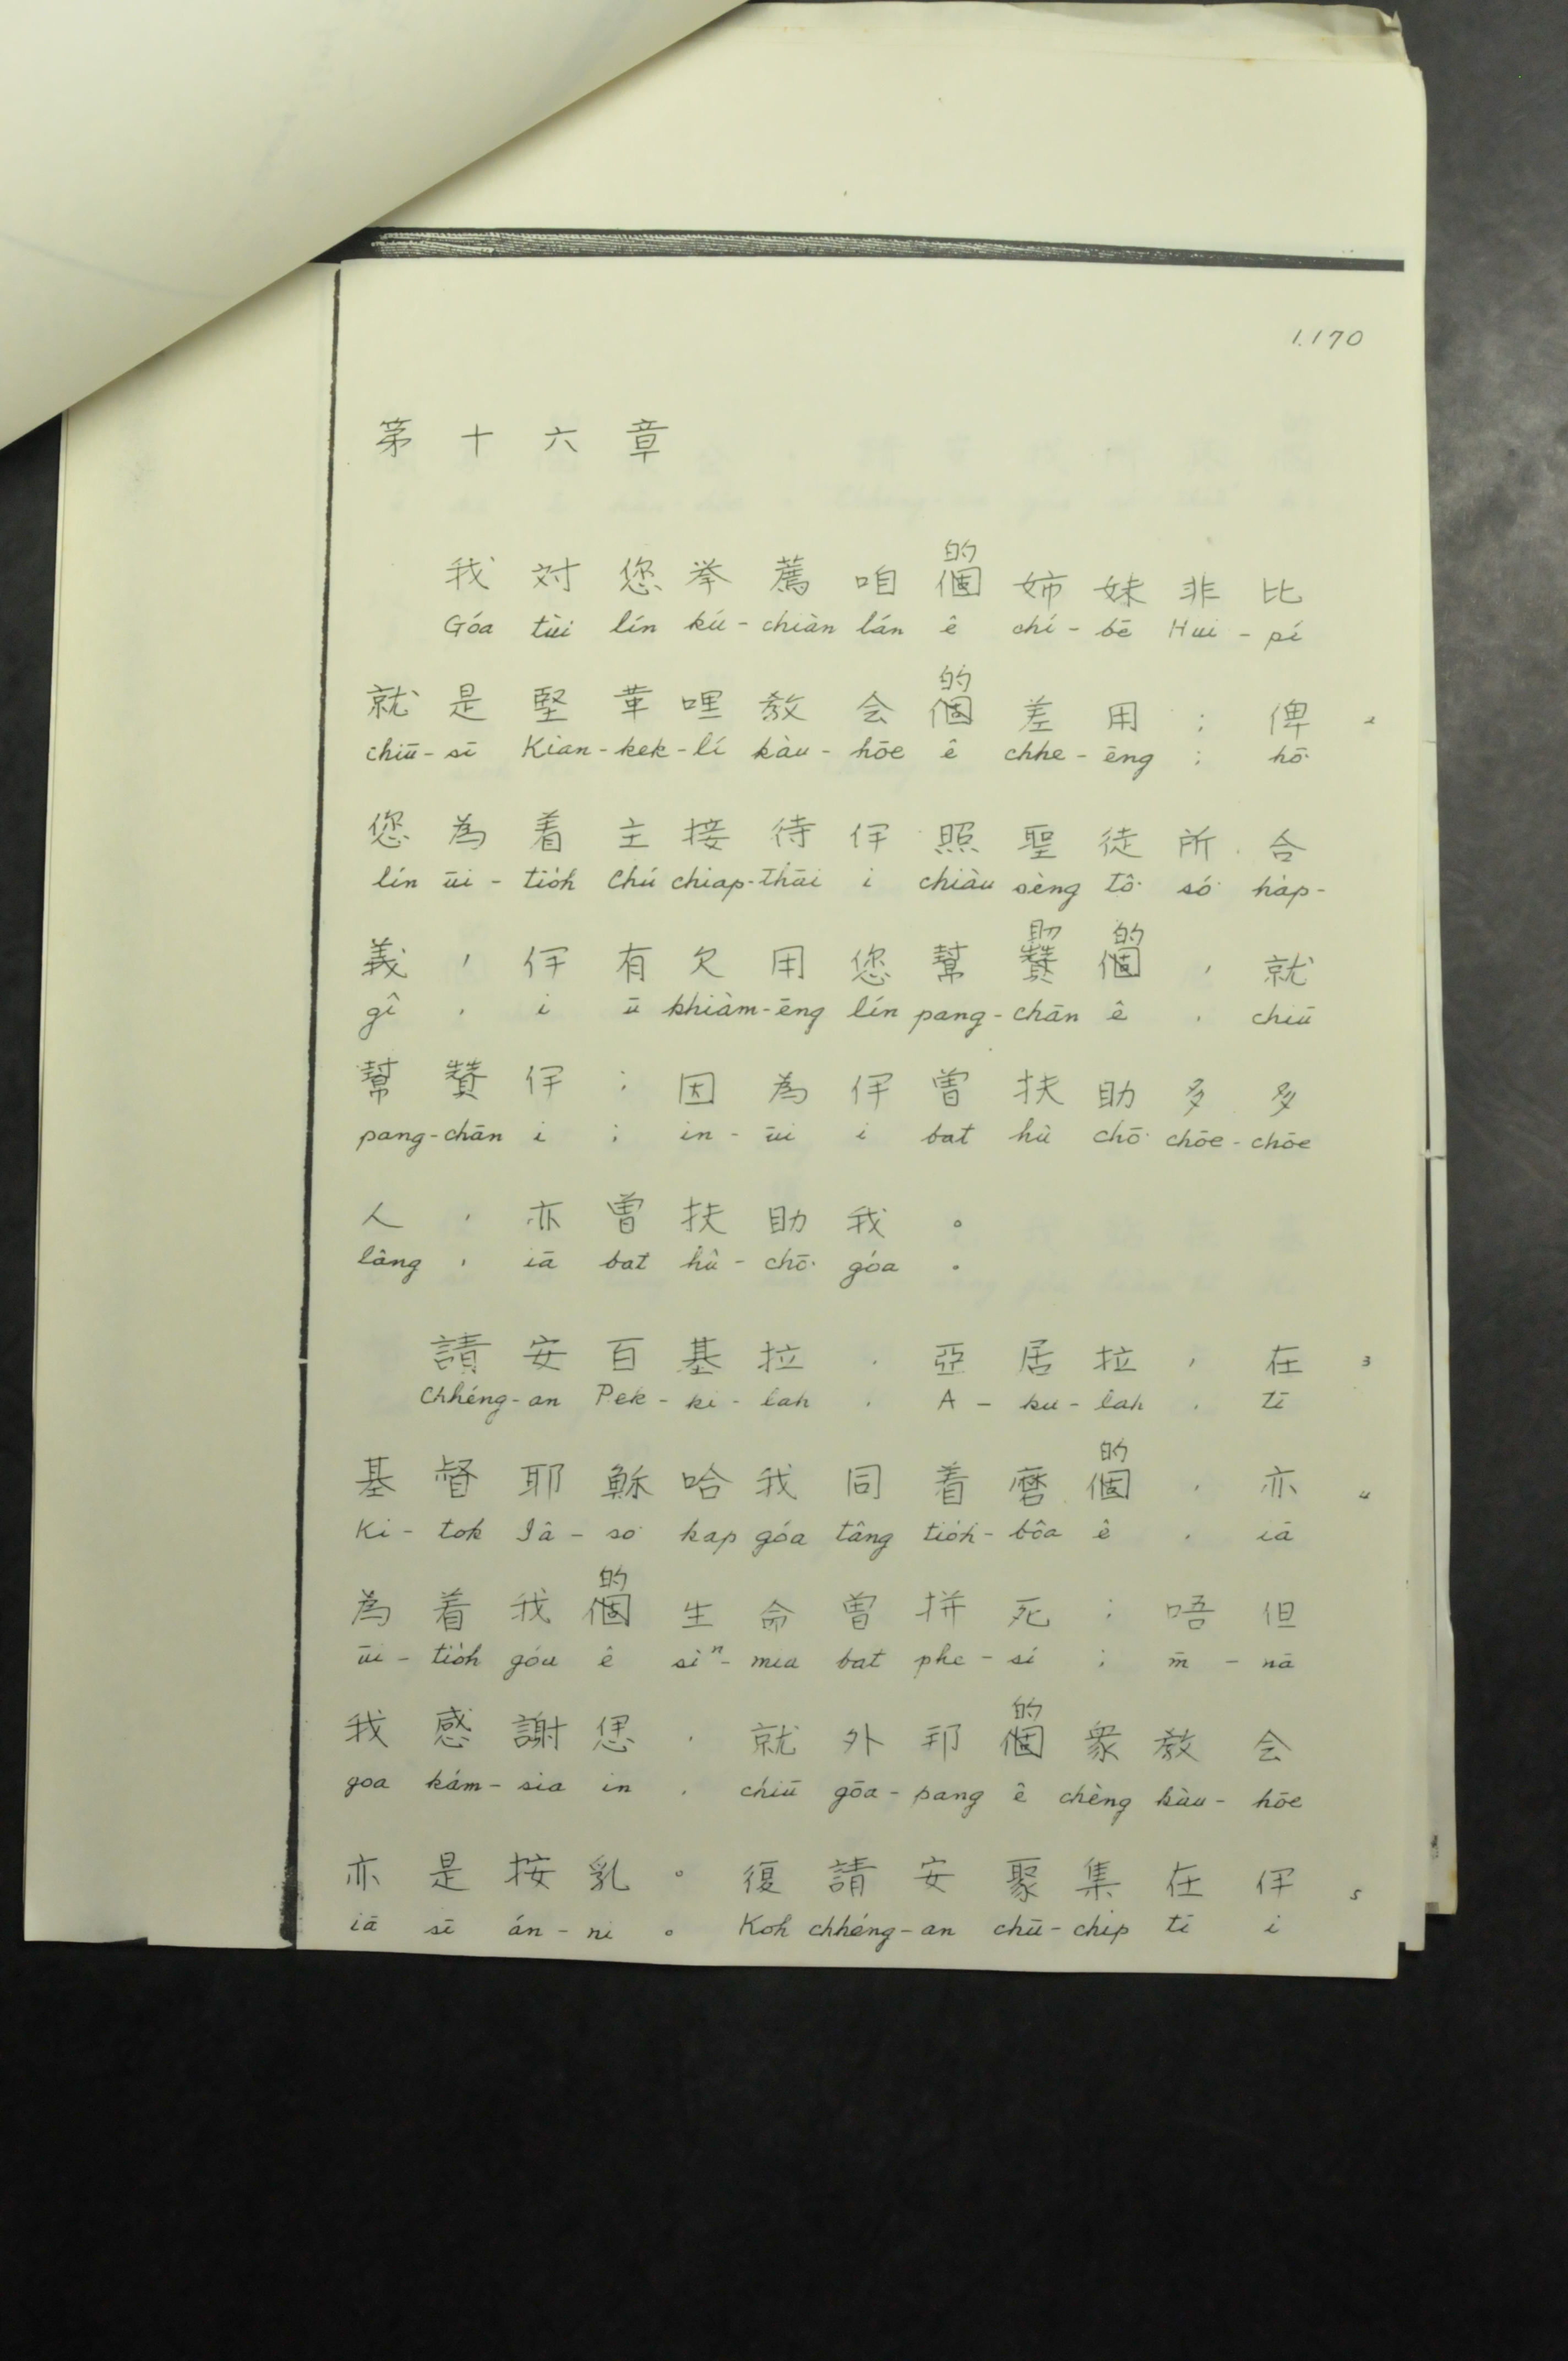 1.170
第十六章
的
我对您举薦咱個姉妹非比
Góa tùi lín kú-chiàn lán ê chí-bē Hui-pí
的
就是堅革哩教会個差用；俾 2
chiū-sī Kian-kek-lí kàu-hōe ê chhe-ēng ; hō͘
您為着主接待伊照聖徒所合
lín ūi-tio̍h Chú chiap-thāi i chiàu sèng tô͘ só͘ ha̍p-
助 的
義，伊有欠用您幫贊個，就
gî , i ū khiàm-ēng lín pang-chān ê , chiū
幫贊伊；因為伊曽扶助多多
pang-chān i ; in-ūi i bat hù chō͘ chōe-chōe
人，亦曽扶助我。
lâng , iā bat hû-chō͘ góa .
請安百基拉，亞居拉，在 3
Chhéng-an Pek-ki-lah , A-ku-lah , tī
的
基督耶穌哈我同着磨個，亦 4
Ki-tok Iâ-so͘ kap góa tâng tio̍h-bôa ê , iā
的
為着我個生命曽拼死；唔但
ūi-tio̍h góa ê sìⁿ-mia bat phe-sí ; m̄-nā
的
我感謝恁，就外邦個衆教会
goa kám-sia in , chiū gōa-pang ê chèng kàu-hōe
亦是按乳。復請安聚集在伊 5
iā sī án-ni 。 Koh chhéng-an chū-chi̍p tī i